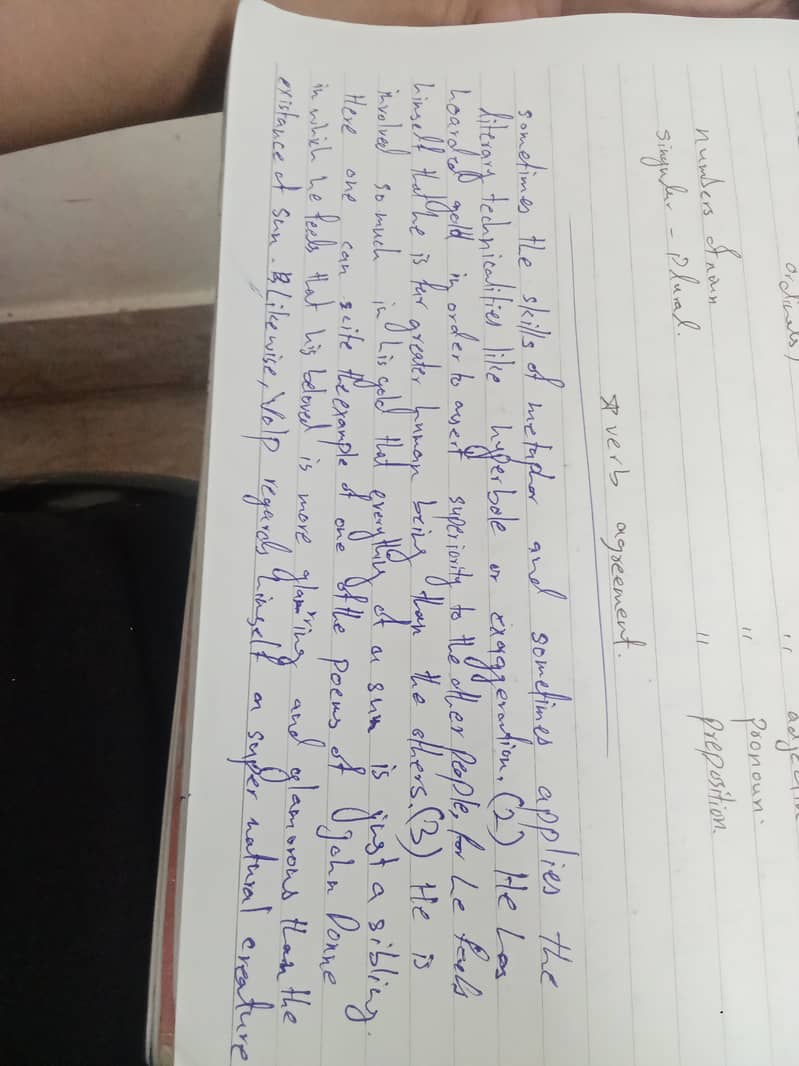 ordinals)
" adjective
" pronoun.
numbers of noun " preposition.
Singular - Plural.
* verb agreement.
sometimes the skills of metaphor and sometimes applies the
literary technicalities like hyperbole or exaggeration. (2) He has
hoarded gold in order to assert superiority to the other people, for he feels
himself that he is far greater human being than the others. (3) He is
involved so much in his gold that everything of a sun is just a sibling.
Here one can scite the example of one of the poems of John Donne
in which he feels that his beloved is more glamring and glamorous than the
existance of sun. Likewise, Volp regards himself a super natural creature